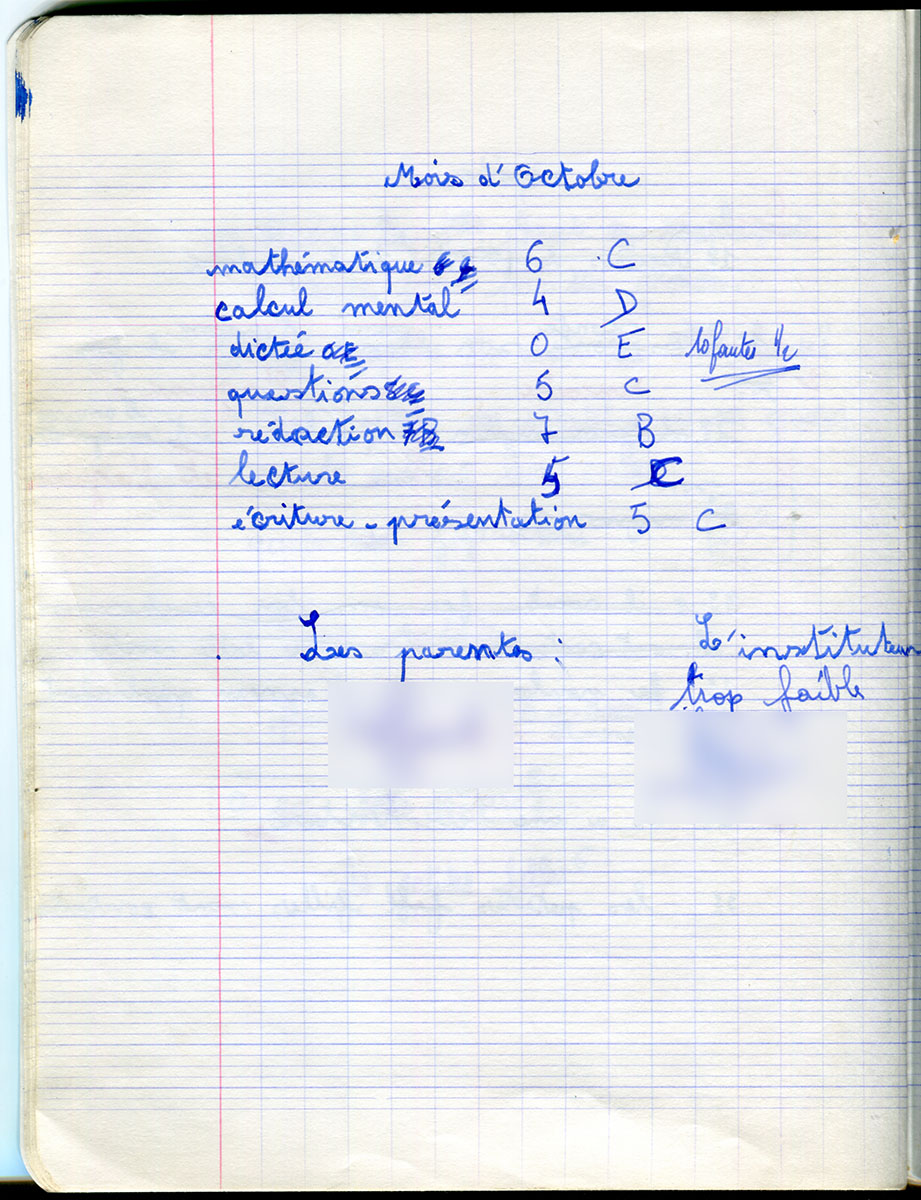 Mois d'Octobre
mathématique 6 C
calcul mental 4 D
dictée 0 E 10 fautes 1/2
questions 5 C
rédaction 7 B
lecture 5 C
écriture - présentation 5 C
Les parents : L'instituteur
trop faible